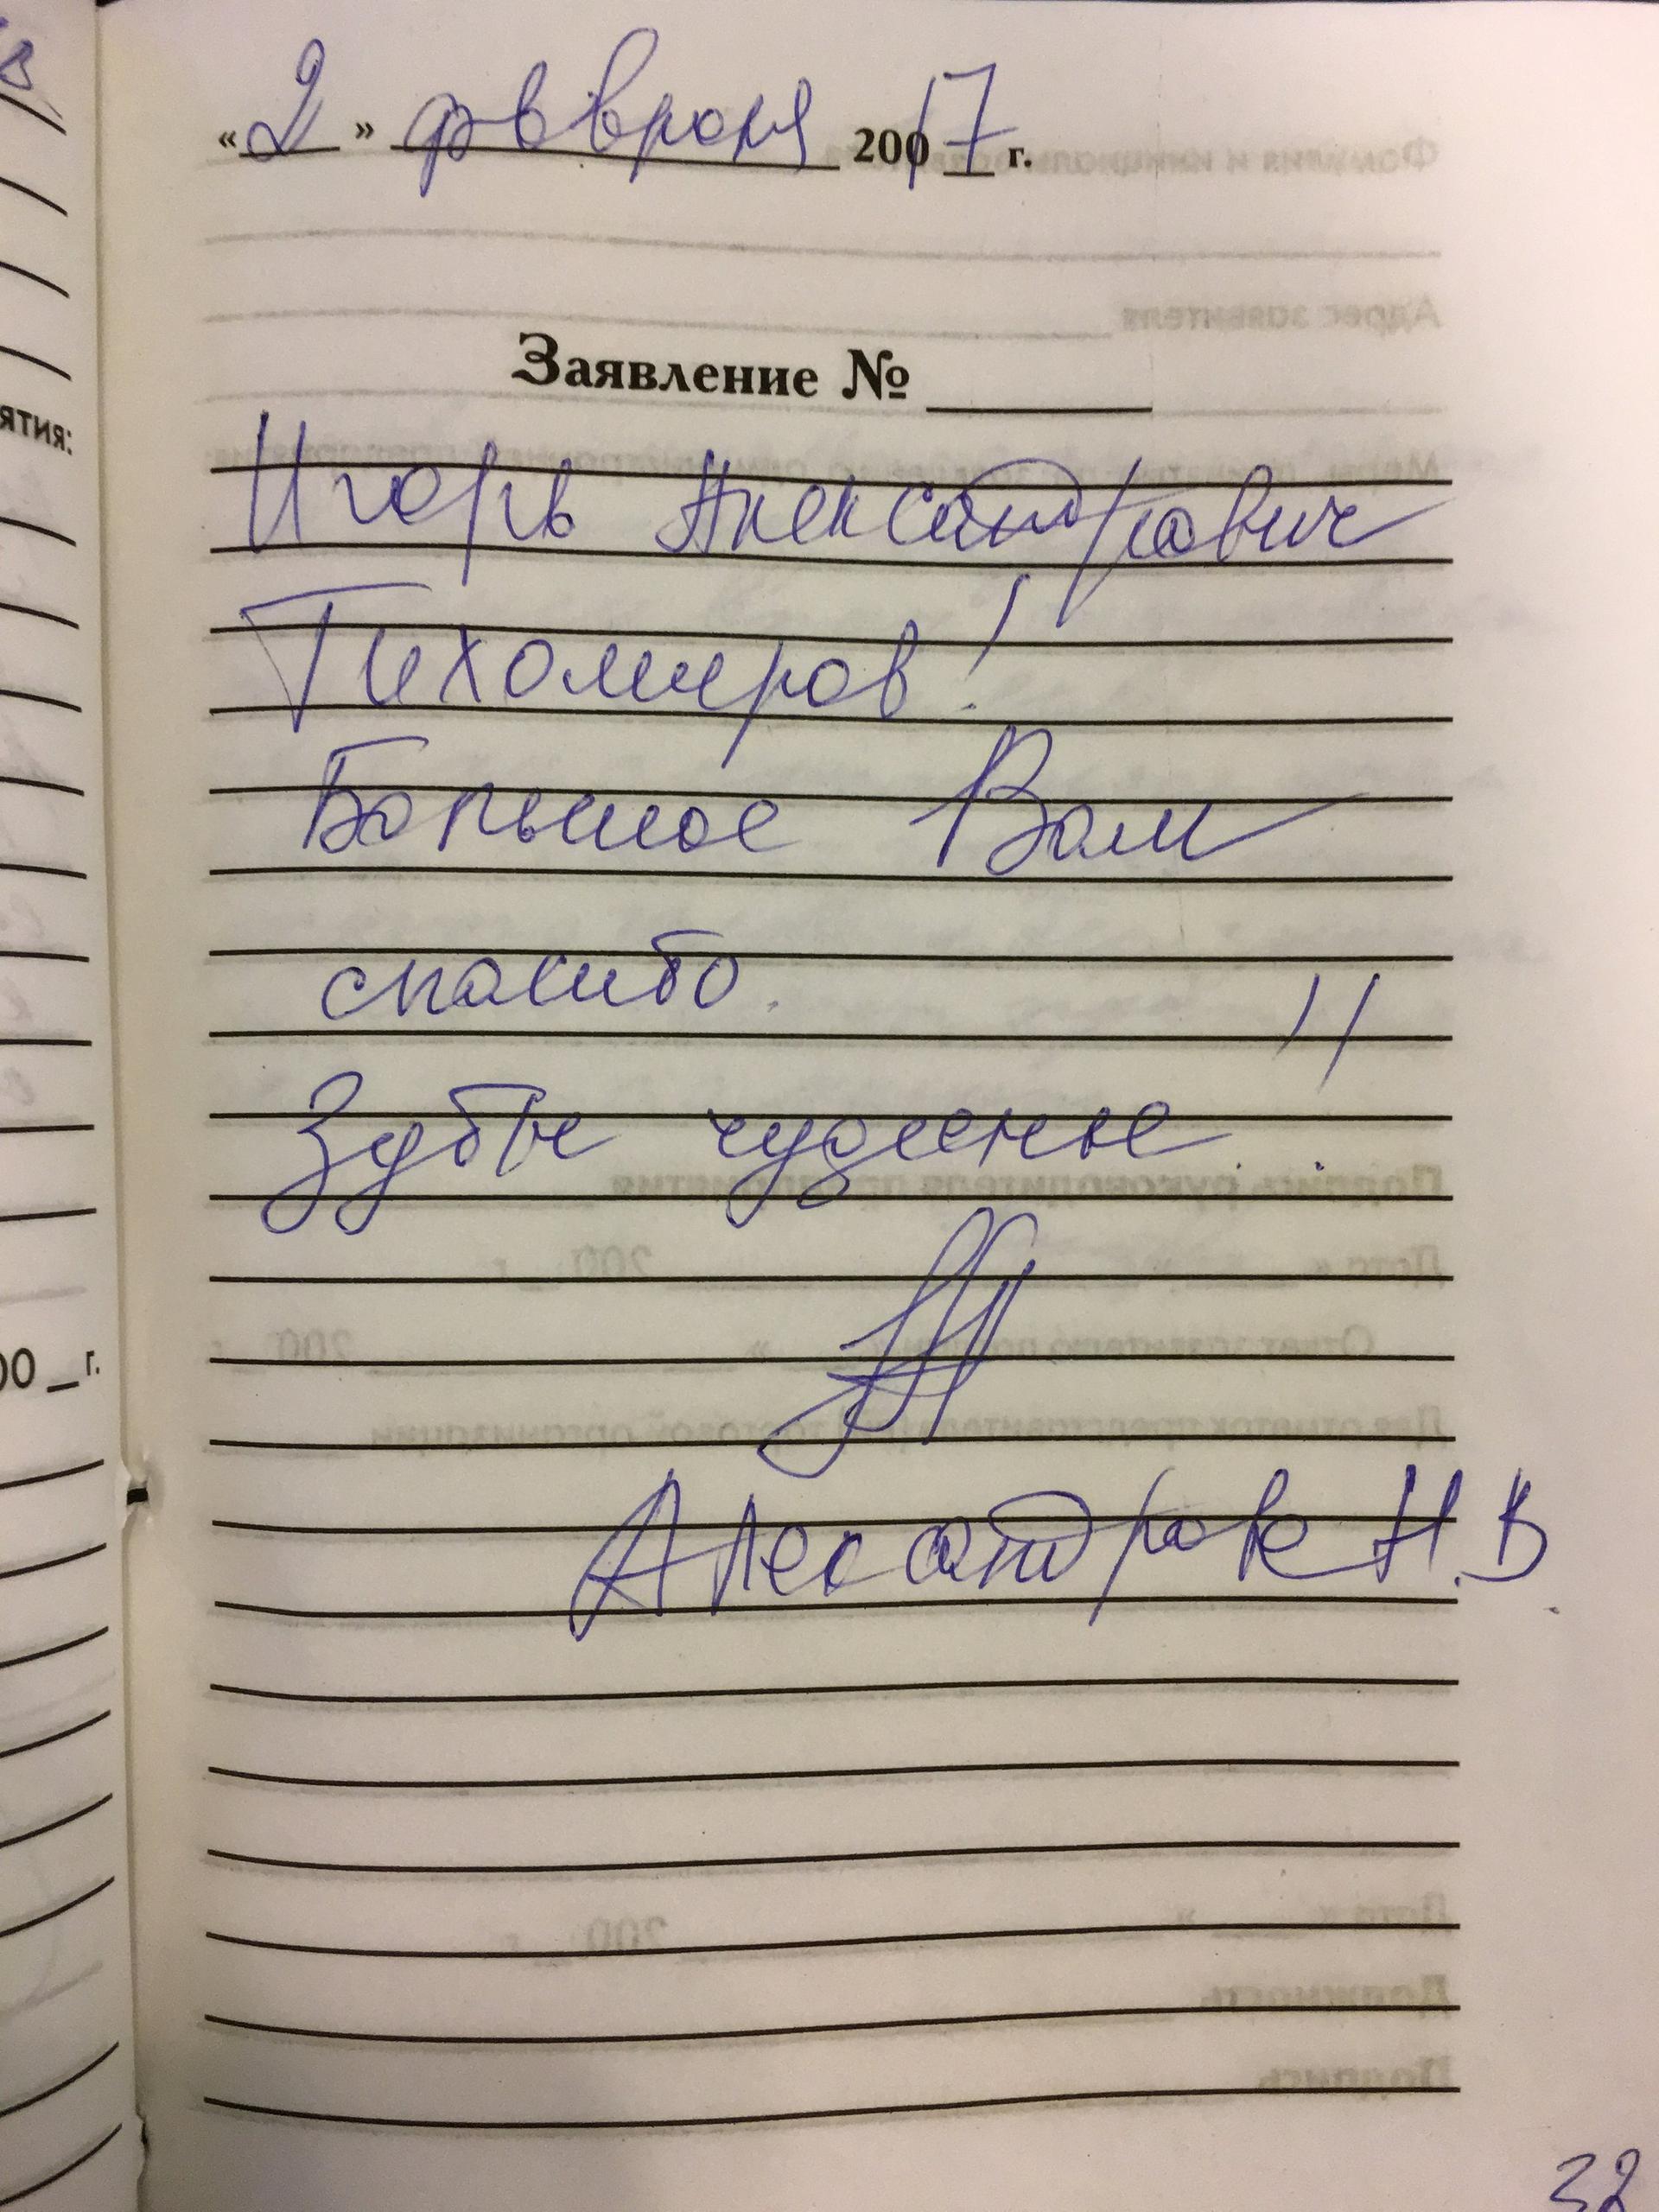 « 2 » февраля 20017 г.
Заявление №
Игорь Александрович
Тихомиров!
Большое Вам
спасибо.
Зубы чудесные !!
Алесандрова Н.В
ятия:
00 г.
32